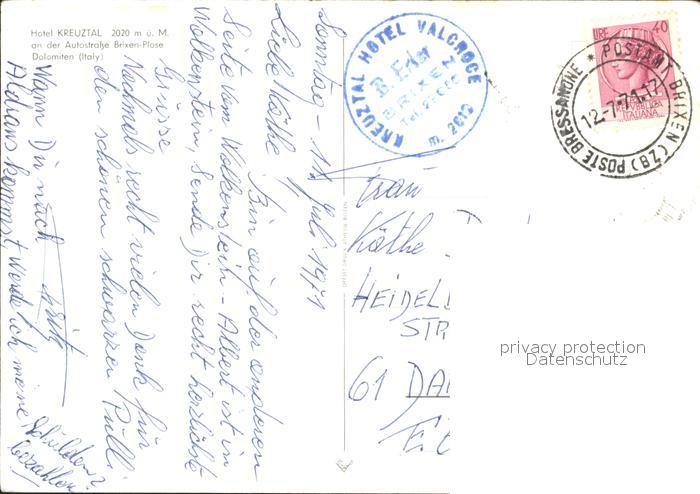 Hotel KREUZTAL 2020 m ü. M.
an der Autostraße Brixen-Plose
Dolomiten (Italy)
KREUZTAL HOTEL VALCROCE
BRIXEN
m. 2010
LIRE 40
REPUBBLICA
ITALIANA
POSTAMT BRIXEN (ZB) POSTE BRESSANONE *
12.-7-71.17
Sonntag - 11. Juli 1971
Liebe Käthe! Bin auf der anderen
Seite vom Wolkenstein - Albert ist in
Wolkenstein, sende Dir recht herzlichste
Grüsse
Nochmals recht vielen Dank für
den schönen schwarzen Pulli
Wann Du nach
Aldrans kommst, werde ich meine
Schulden
bezahlen
Frau
Käthe
HEIDEL
STR
61 DA
privacy protection
Datenschutz